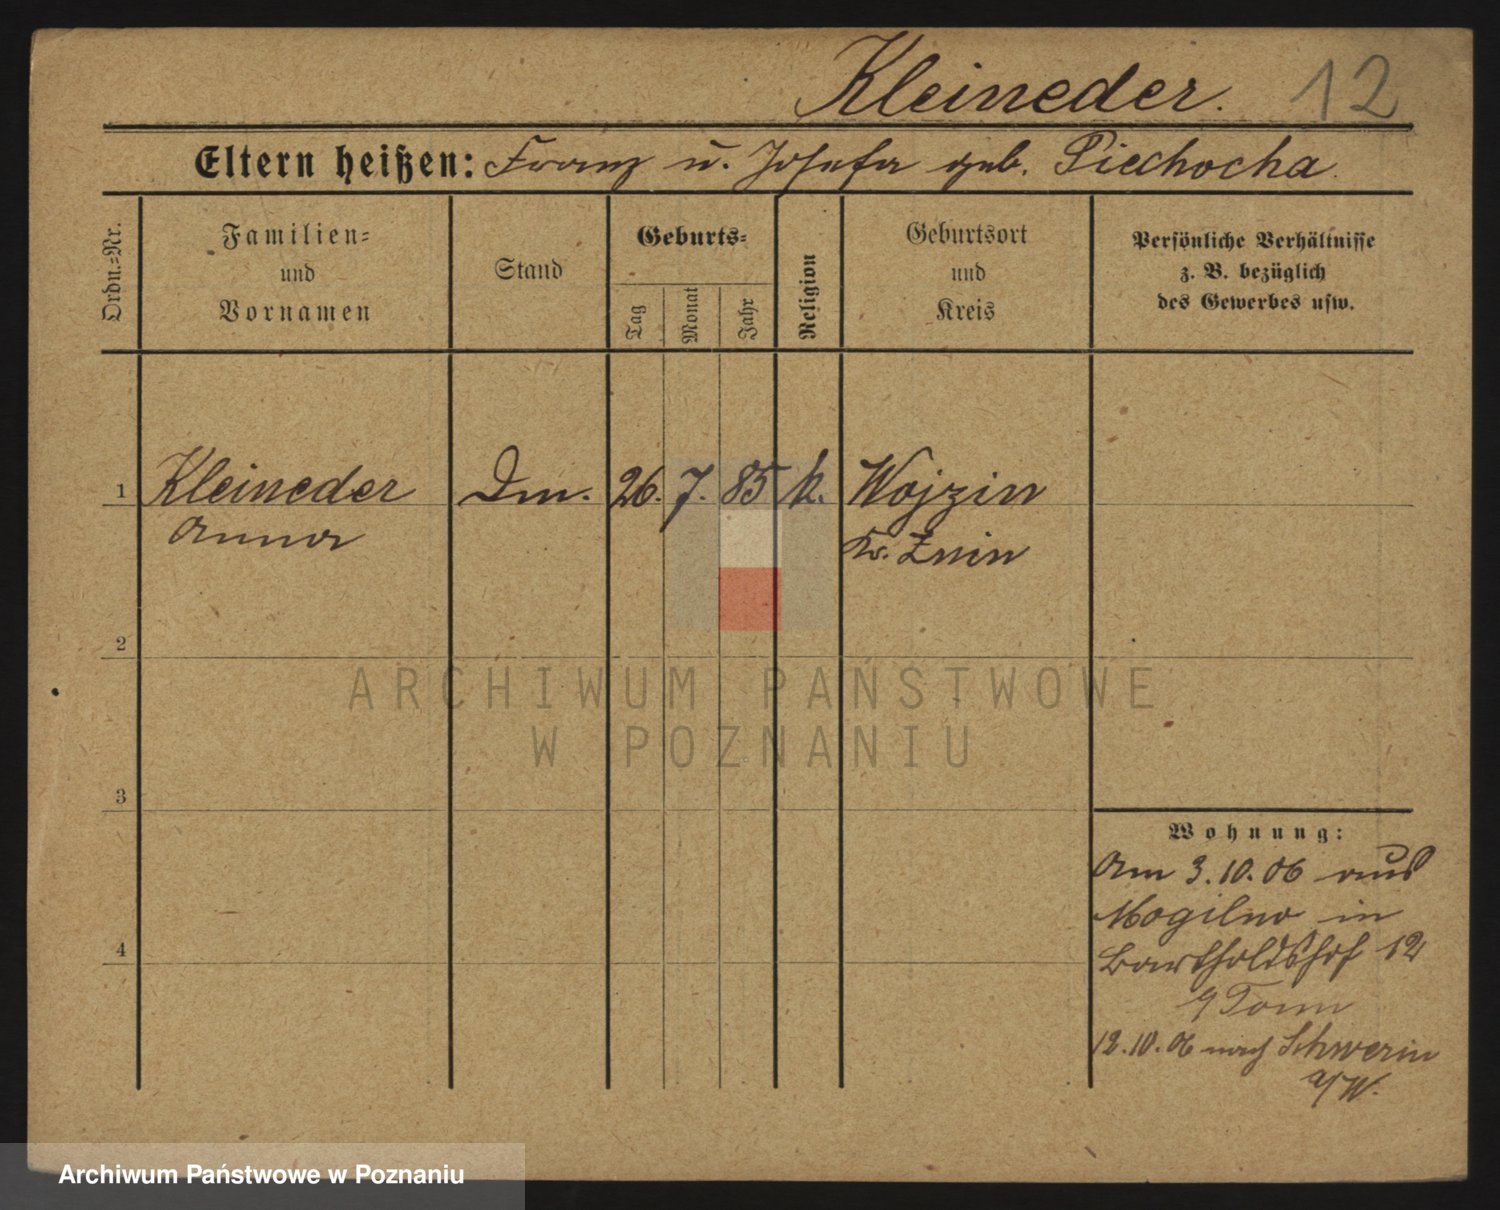 Kleineder. 12
Eltern heißen: Franz u. Josefa geb. Piechocka.
Ordn.=Nr.
Familien=
und
Vornamen
Stand
Geburts=
Tag
Monat
Jahr
Religion
Geburtsort
und
Kreis
Persönliche Verhältnisse
z. B. bezüglich
des Gewerbes usw.
1 Kleineder Dm. 26. 7. 85 k. Wojzin
Anna Kr. Znin
2
ARCHIWUM PAŃSTWOWE
W POZNANIU
3
Wohnung:
Am 3.10.06 aus
Mogilno in
Bartholdshof 12
4
12.10.06 nach Schwerin
a/W.
Archiwum Państwowe w Poznaniu